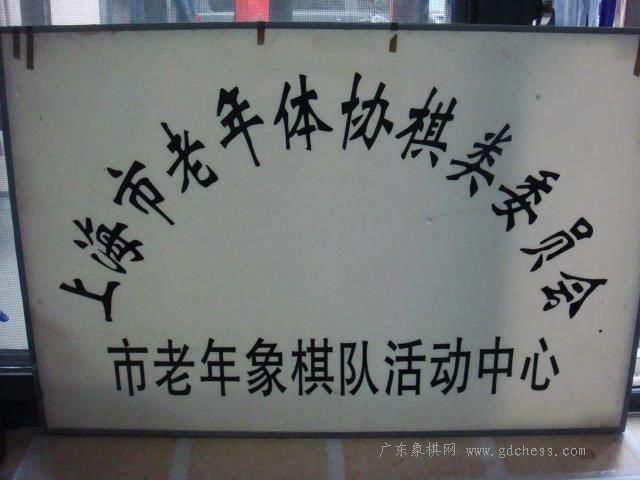 上海市老年体协棋类委员会
市老年象棋队活动中心
广东象棋网 www.gdchess.com